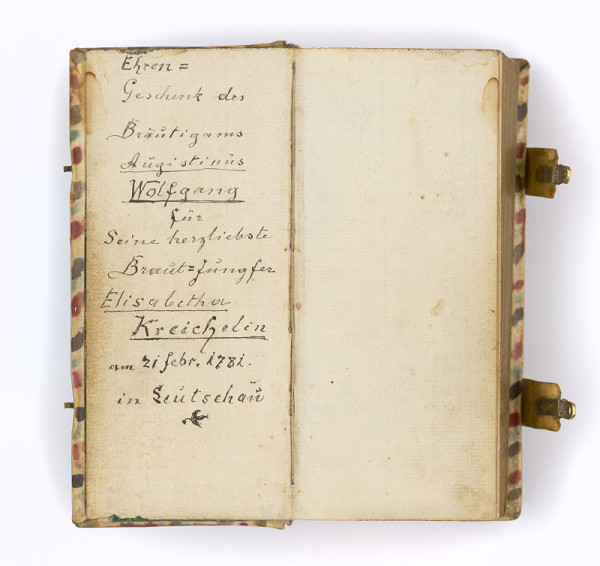 Ehren=
Geschenk des
Bräutigams
Augistinus
Wolfgang
für
Seine herzliebste
Braut=Jungfer
Elisabetha
Kreichelin
am 21 febr. 1781.
in Leutschau